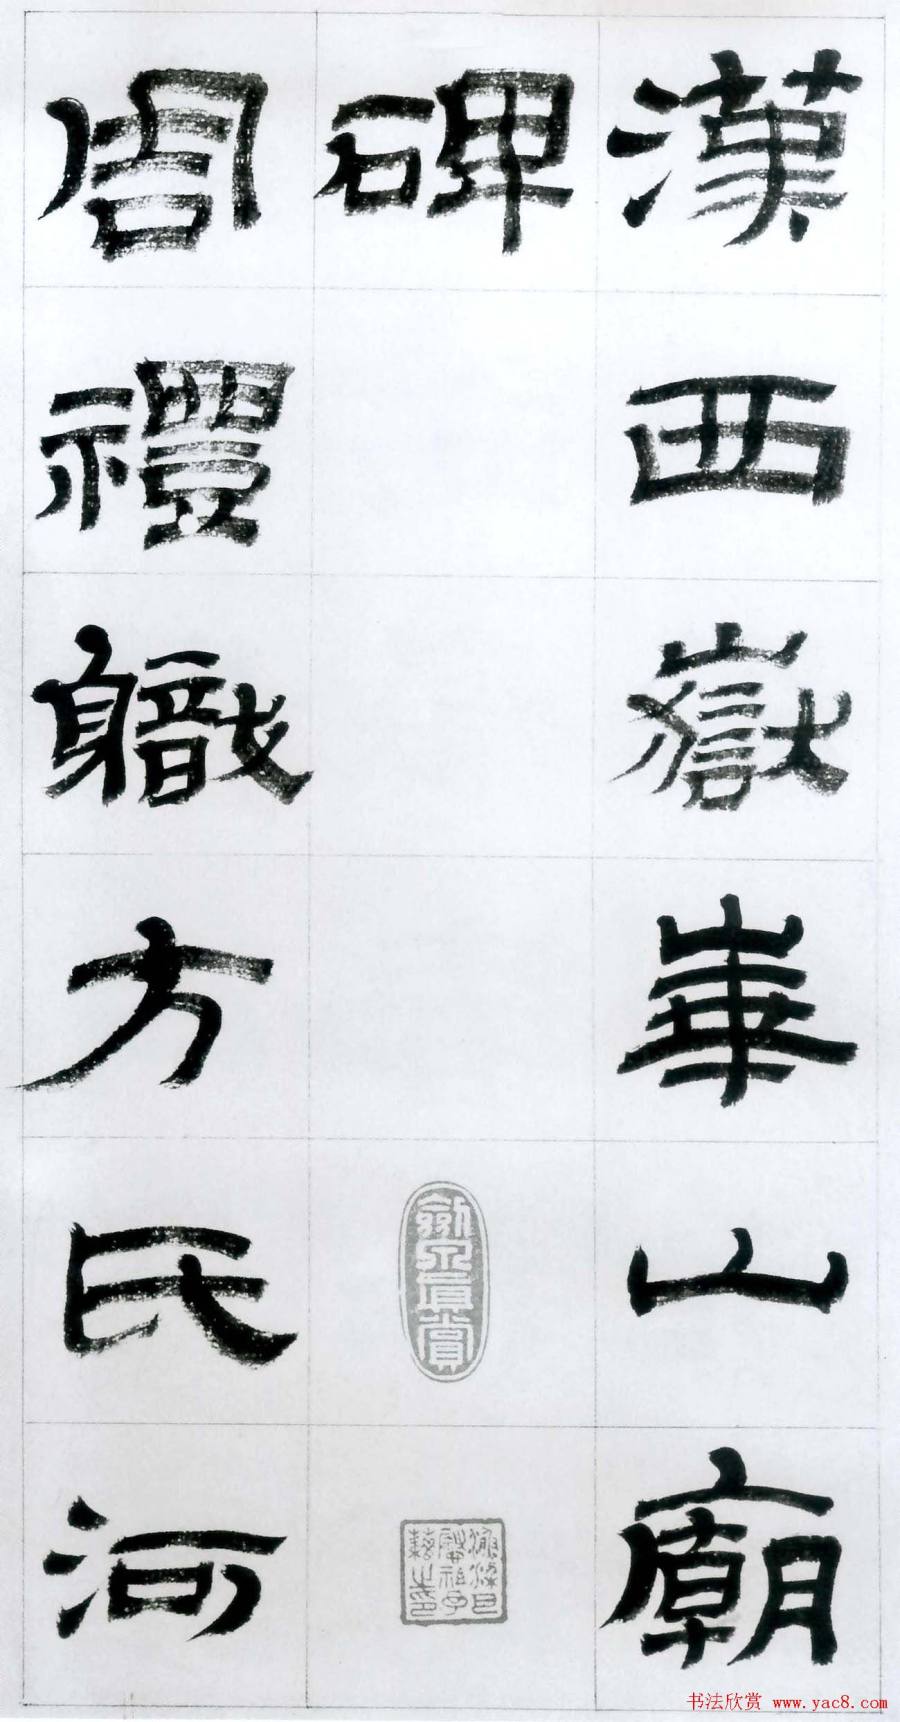 漢西嶽華山廟
碑
周禮軄方氏河
劍泉真賞
书法欣赏 www.yac8.com